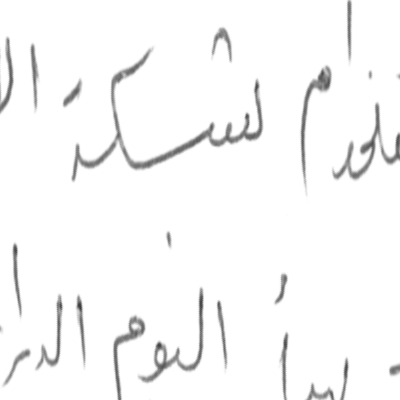 تخدام لشبكة الا
يبدأ اليوم الدرا